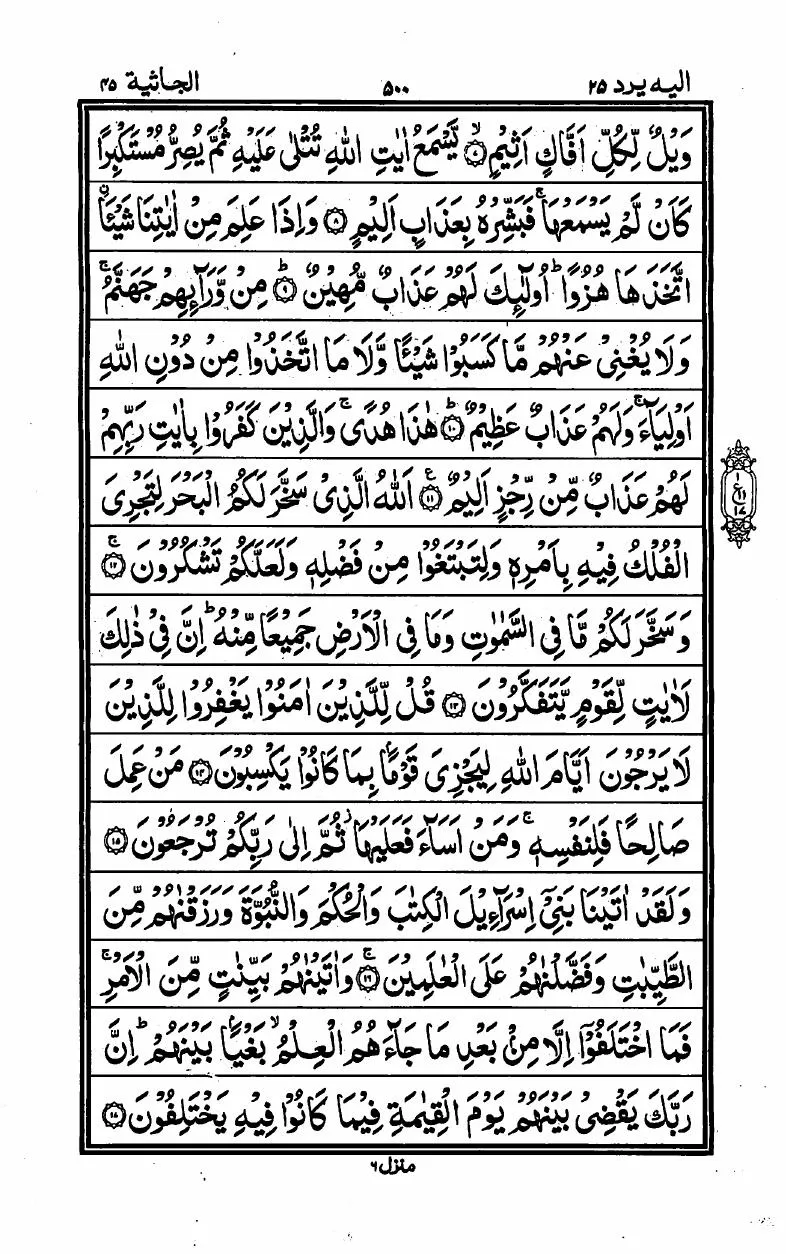 اليه يرد ۲۵ ۵۰۰ الجاثية ۴۵
وَيْلٌ لِّكُلِّ اَفَّاكٍ اَثِيْمٍ ۙ﴿۷﴾ يَّسْمَعُ اٰيٰتِ اللّٰهِ تُتْلٰى عَلَيْهِ ثُمَّ يُصِرُّ مُسْتَكْبِرًا
كَاَنْ لَّمْ يَسْمَعْهَا ۚ فَبَشِّرْهُ بِعَذَابٍ اَلِيْمٍ ﴿۸﴾ وَاِذَا عَلِمَ مِنْ اٰيٰتِنَا شَيْـًٔا
اتَّخَذَهَا هُزُوًا ؕ اُولٰٓئِكَ لَهُمْ عَذَابٌ مُّهِيْنٌ ؕ﴿۹﴾ مِنْ وَّرَآئِهِمْ جَهَنَّمُ ۚ
وَلَا يُغْنِىْ عَنْهُمْ مَّا كَسَبُوْا شَيْـًٔا وَّلَا مَا اتَّخَذُوْا مِنْ دُوْنِ اللّٰهِ
اَوْلِيَآءَ ۚ وَلَهُمْ عَذَابٌ عَظِيْمٌ ؕ﴿۱۰﴾ هٰذَا هُدًى ۚ وَالَّذِيْنَ كَفَرُوْا بِاٰيٰتِ رَبِّهِمْ
لَهُمْ عَذَابٌ مِّنْ رِّجْزٍ اَلِيْمٌ ﴿۱۱﴾ ع اَللّٰهُ الَّذِىْ سَخَّرَ لَكُمُ الْبَحْرَ لِتَجْرِىَ
الْفُلْكُ فِيْهِ بِاَمْرِهٖ وَلِتَبْتَغُوْا مِنْ فَضْلِهٖ وَلَعَلَّكُمْ تَشْكُرُوْنَ ۚ﴿۱۲﴾
وَسَخَّرَ لَكُمْ مَّا فِى السَّمٰوٰتِ وَمَا فِى الْاَرْضِ جَمِيْعًا مِّنْهُ ؕ اِنَّ فِىْ ذٰلِكَ
لَاٰيٰتٍ لِّقَوْمٍ يَّتَفَكَّرُوْنَ ﴿۱۳﴾ قُلْ لِّلَّذِيْنَ اٰمَنُوْا يَغْفِرُوْا لِلَّذِيْنَ
لَا يَرْجُوْنَ اَيَّامَ اللّٰهِ لِيَجْزِىَ قَوْمًۢا بِمَا كَانُوْا يَكْسِبُوْنَ ﴿۱۴﴾ مَنْ عَمِلَ
صَالِحًا فَلِنَفْسِهٖ ۚ وَمَنْ اَسَآءَ فَعَلَيْهَا ؗ ثُمَّ اِلٰى رَبِّكُمْ تُرْجَعُوْنَ ﴿۱۵﴾
وَلَقَدْ اٰتَيْنَا بَنِىْٓ اِسْرَآءِيْلَ الْكِتٰبَ وَالْحُكْمَ وَالنُّبُوَّةَ وَرَزَقْنٰهُمْ مِّنَ
الطَّيِّبٰتِ وَفَضَّلْنٰهُمْ عَلَى الْعٰلَمِيْنَ ۚ﴿۱۶﴾ وَاٰتَيْنٰهُمْ بَيِّنٰتٍ مِّنَ الْاَمْرِ ۚ
فَمَا اخْتَلَفُوْٓا اِلَّا مِنْۢ بَعْدِ مَا جَآءَهُمُ الْعِلْمُ ۙ بَغْيًۢا بَيْنَهُمْ ؕ اِنَّ
رَبَّكَ يَقْضِىْ بَيْنَهُمْ يَوْمَ الْقِيٰمَةِ فِيْمَا كَانُوْا فِيْهِ يَخْتَلِفُوْنَ ﴿۱۷﴾
منزل ۶